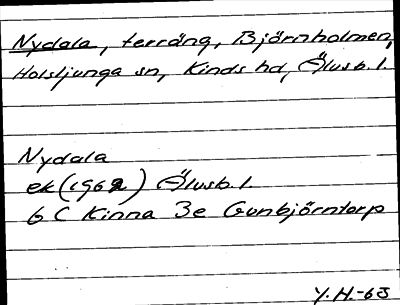 Nydala, terräng, Björnholmen,
Holsljunga sn, Kinds hd, Älvsb. l.
Nydala
ek (1962) Älvsb. l.
6 C Kinna 3e Gunbjörntorp
Y. H. -63